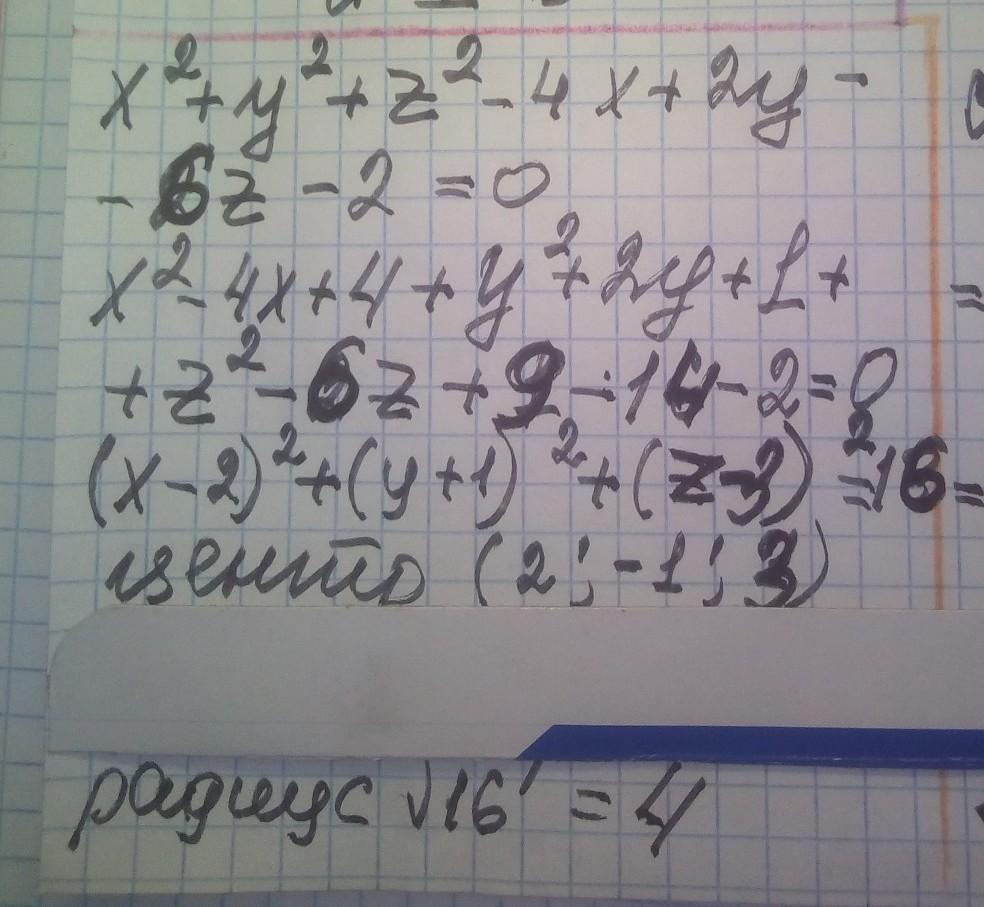 x² + y² + z² - 4x + 2y -
- 6z - 2 = 0
x² - 4x + 4 + y² + 2y + 1 +
+ z² - 6z + 9 - 14 - 2 = 0
(x - 2)² + (y + 1)² + (z - 3)² = 16 =
центр (2; -1; 3)
радиус √16 = 4